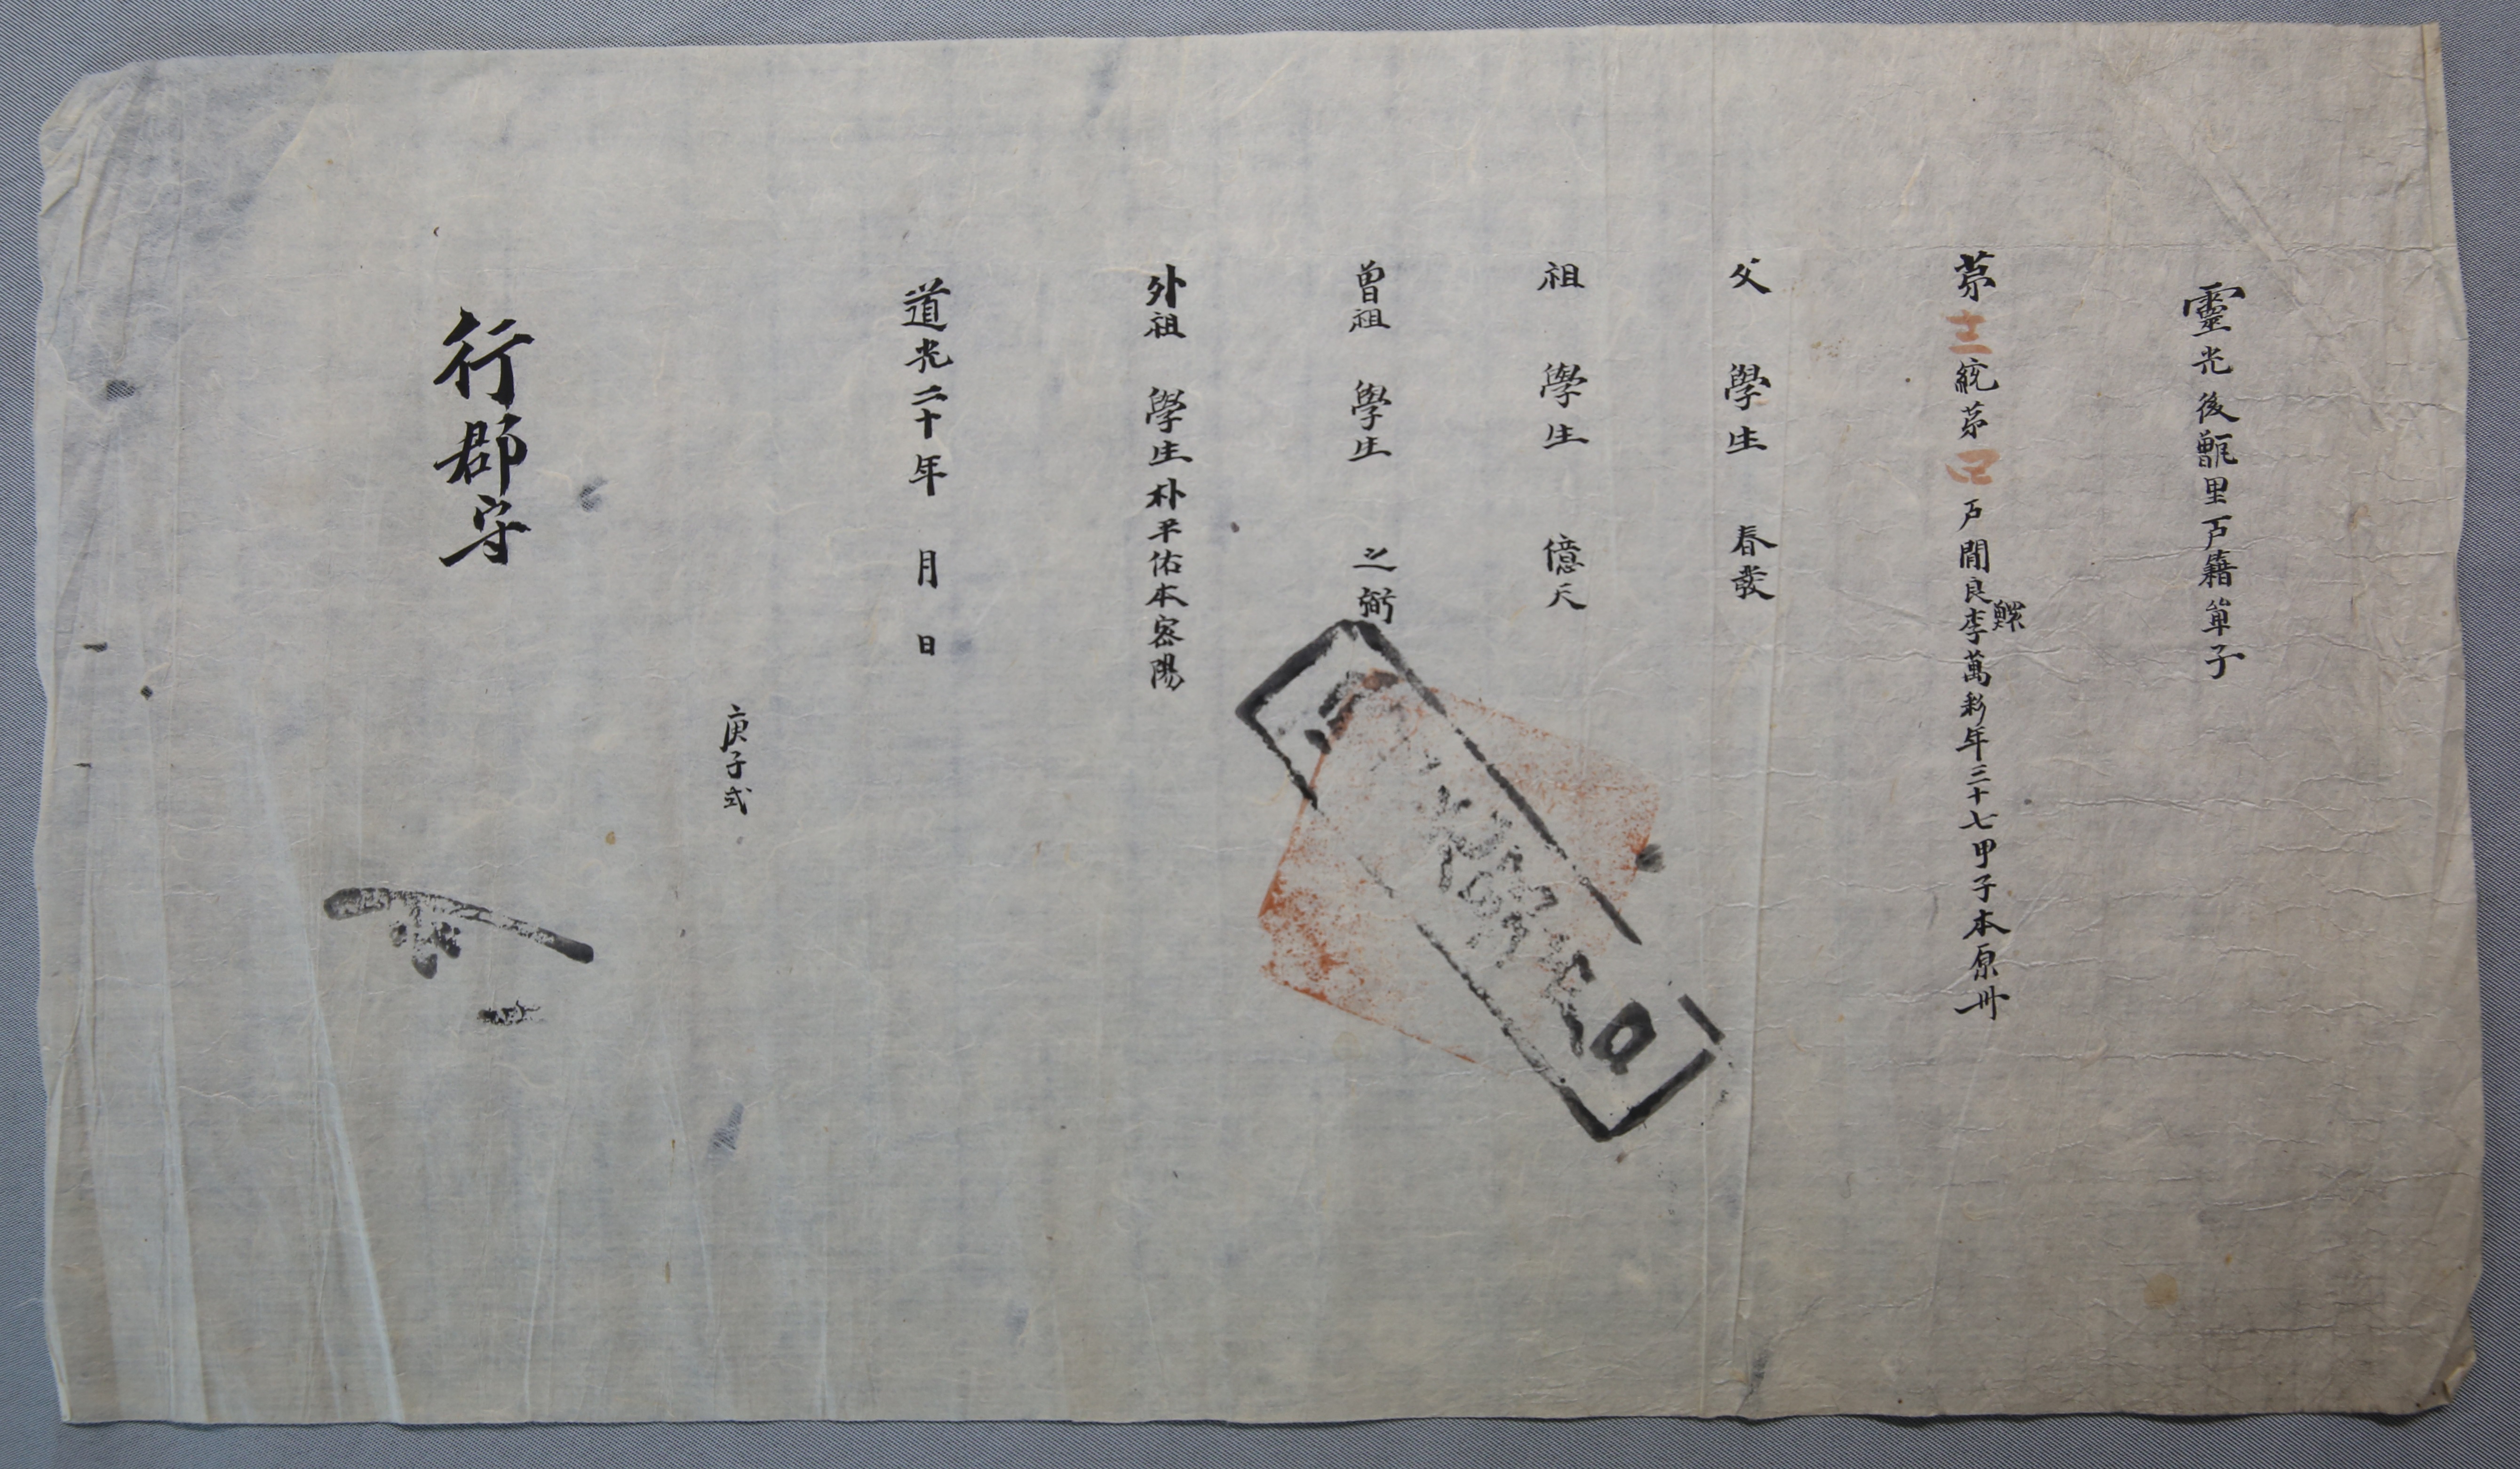 靈光後甑里戶籍單子
第十二統第四戶閒良李萬彩年三十七甲子本原州
鰥
父 學生 春發
祖 學生 億天
曾祖 學生 之弼
外祖 學生朴平佑本密陽
道光二十年 月 日
庚子式
行郡守